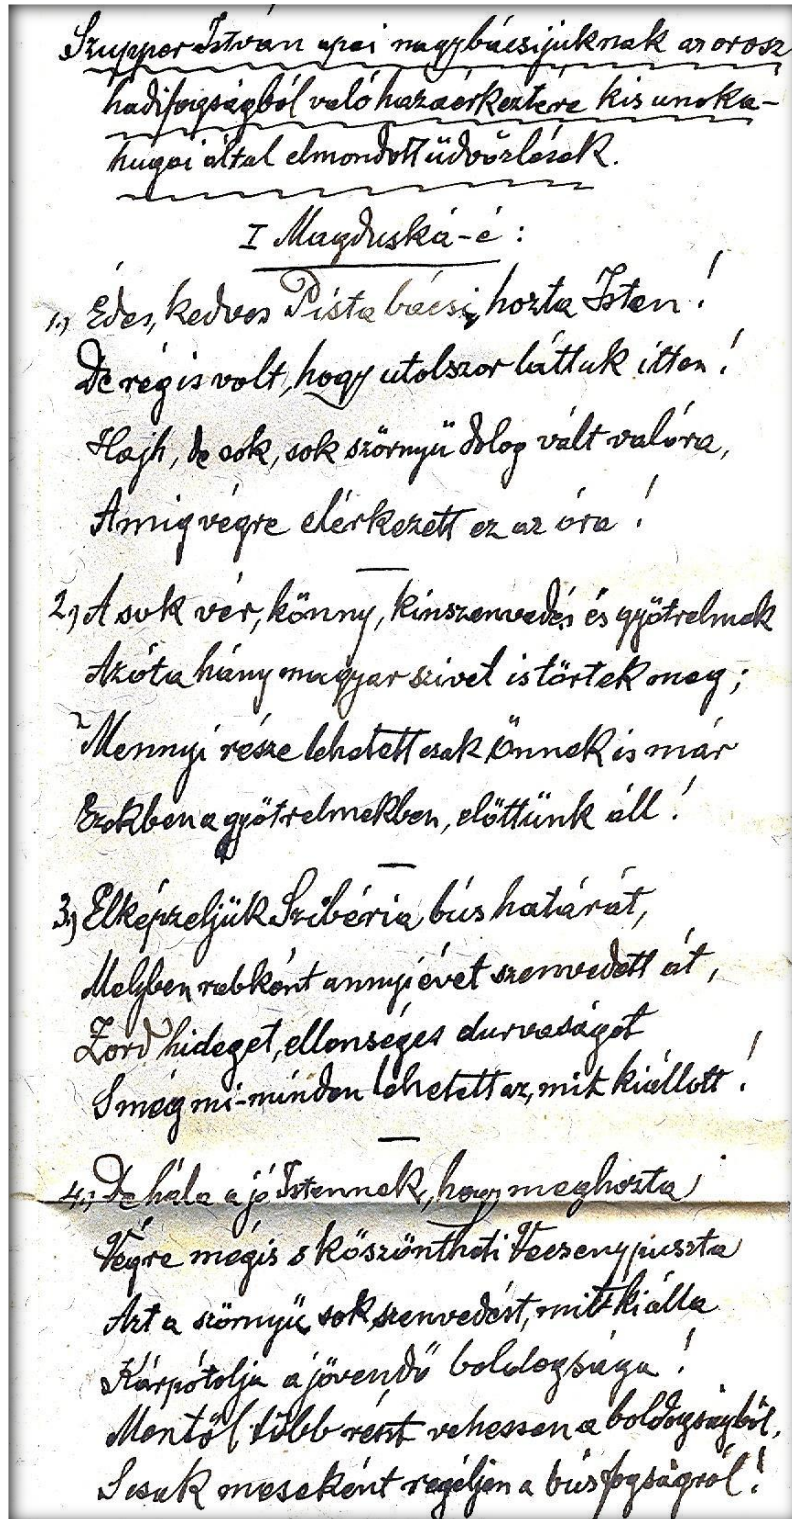 Szupper István apai nagybácsijuknak az orosz
hadifogságból való hazaérkeztére kis unoka-
hugai által elmondott üdvözlések.
I Magduská-é:
1., Édes, kedves Pista bácsi, hozta Isten!
De rég is volt, hogy utolszor láttuk itten!
Hajh, de sok, sok szörnyü dolog vált valóra,
Amig végre elérkezett ez az óra!
2., A sok vér, könny, kinszenvedés és gyötrelmek
Azóta hány magyar szivet is törtek meg;
Mennyi része lehetett csak Önnek is már
Ezekben a gyötrelmekben, előttünk áll!
3., Elképzeljük Szibéria bús határát,
Melyben rabként annyi évet szenvedett át,
Zord hideget, ellenséges durvaságot
S még mi-minden lehetett az, mit kiállott!
4., De hála a jó Istennek, hogy meghozta
Végre mégis s köszöntheti Vecsenypuszta
Azt a szörnyü, sok szenvedést, mit kiálla
Kárpótolja a jövendő boldogsága!
Mentől több részt vehessen a boldogságból,
S csak meseként regéljen a bús fogságról!